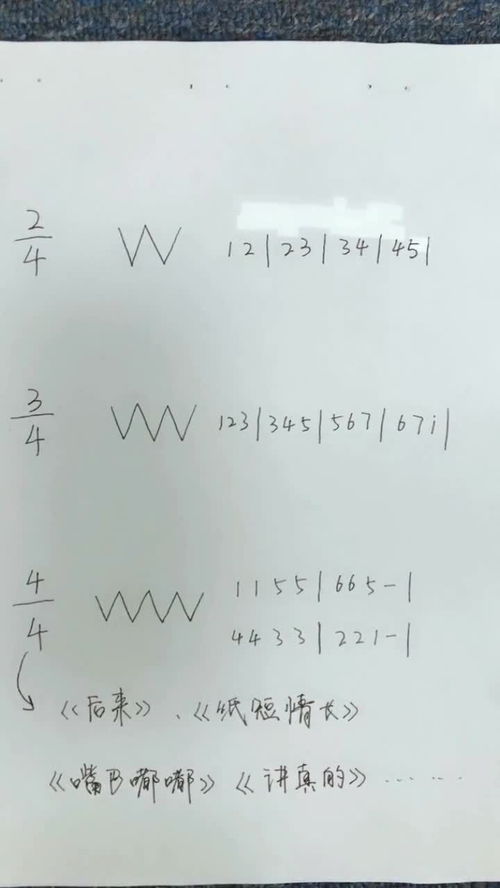 2/4 VV 12|23|34|45|
3/4 VVV 123|345|567|67i|
4/4 VVVV 1155|665-|
4433|221-|
《后来》、《纸短情长》
《嘴巴嘟嘟》《讲真的》……